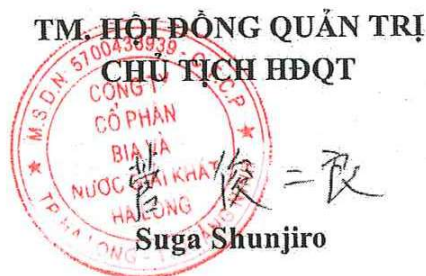 TM. HỘI ĐỒNG QUẢN TRỊ
CHỦ TỊCH HĐQT
M.S.D.N: 5700438939 - C.T.C.P
CÔNG TY
CỔ PHẦN
BIA VÀ
NƯỚC GIẢI KHÁT
HẠ LONG
TP. HẠ LONG - T. QUẢNG NINH
菅 俊二良
Suga Shunjiro